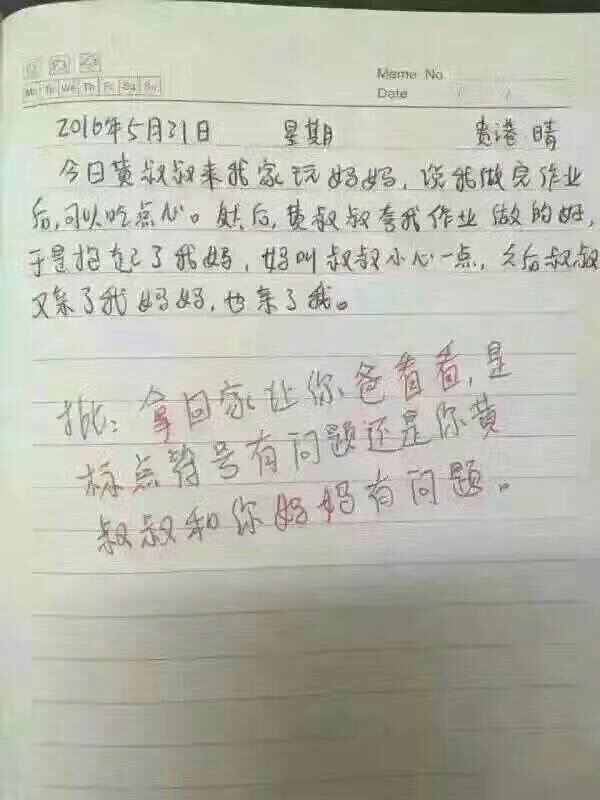 Mo Tu We Th Fr Sa Su
Memo No.
Date / /
2016年5月31日 星期 贵港 晴
今日黄叔叔来我家玩妈妈,说我做完作业
后,可以吃点心。然后,黄叔叔夸我作业做的好,
于是抱起了我妈,妈叫叔叔小心一点,之后叔叔
又亲了我妈妈,也亲了我。
批:拿回家让你爸看看,是
标点符号有问题还是你黄
叔叔和你妈妈有问题。